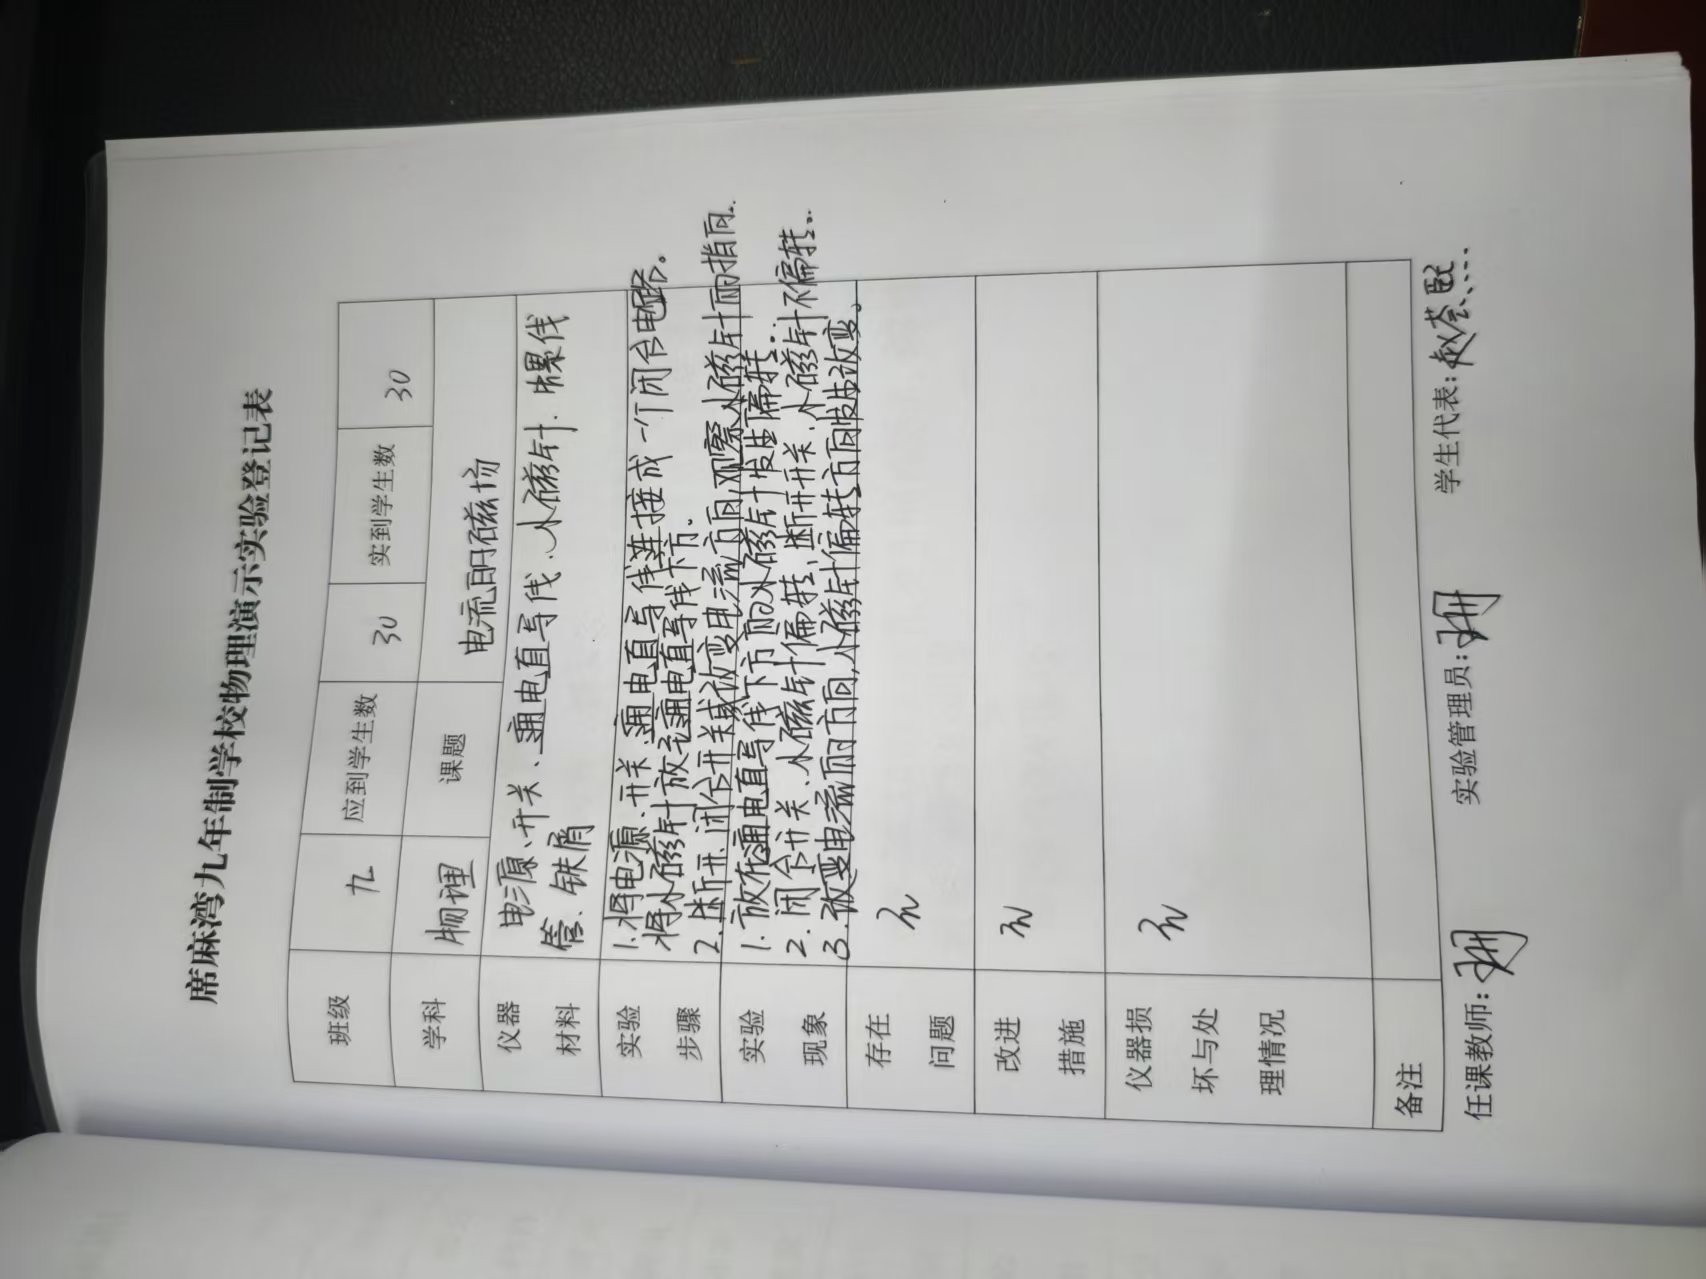 席麻湾九年制学校物理演示实验登记表
班级 九 应到学生数 30 实到学生数 30
学科 物理 课题 电流的磁场
仪器材料 电源、开关、通电直导线、小磁针、螺线
管、铁屑
实验步骤 1.将电源、开关、通电直导线连接成一个闭合电路。
将小磁针放在通电直导线下方.
2.断开、闭合开关或改变电流方向,观察小磁针的指向.
实验现象 1.放在通电直导线下方的小磁针发生偏转.
2.闭合开关、小磁针偏转、断开开关、小磁针不偏转.
3.改变电流的方向,小磁针偏转方向发生改变。
存在问题 无
改进措施 无
仪器损坏与处理情况 无
备注
任课教师: 实验管理员: 学生代表:赵